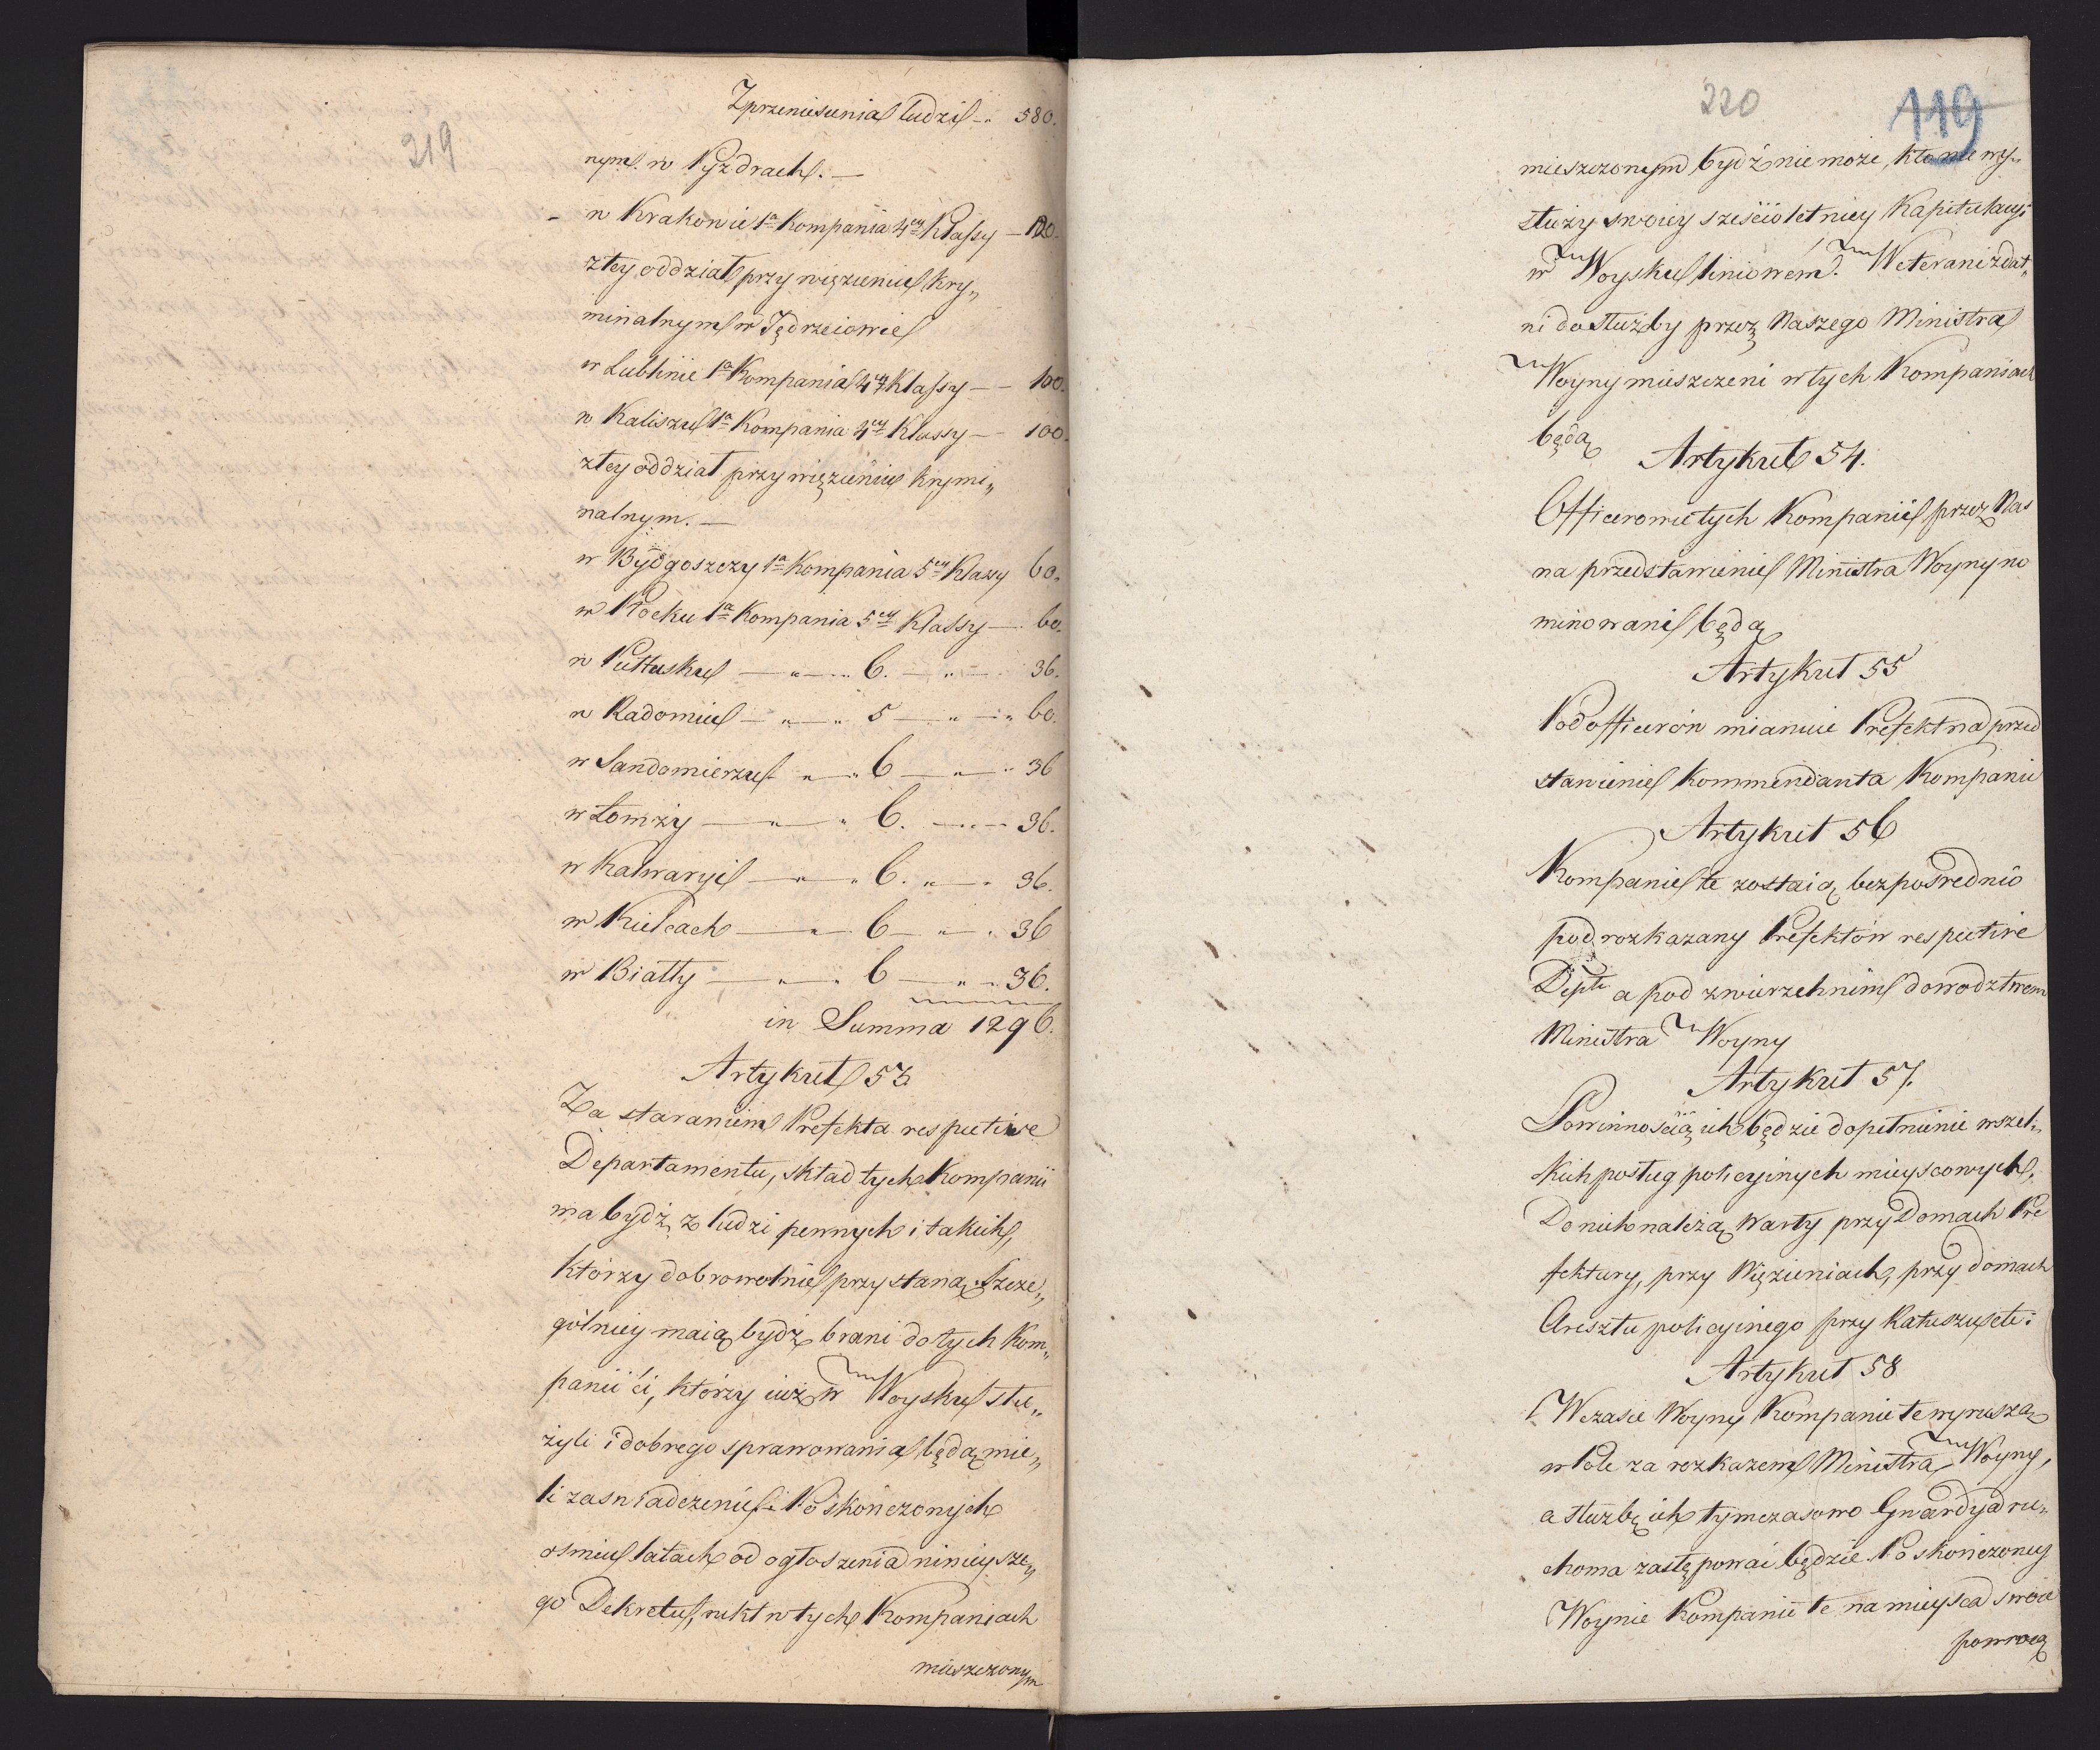 219
Z przeniesienia ludzi -" 580.
nym. w Pyzdrach. —
- w Krakowie 1a Kompania 4ey Klassy — 120.
z tey oddział przy więzieniu Kry„
minalnym w Jędrzeiowie
w Lublinie 1a Kompania 4ey Klassy — - 100.
w Kaliszu 1a Kompania 4ey Klassy — - 100.
z tey oddział przy więzieniu Krymi„
nalnym. —
w Bydgoszczy 1a Kompania 5ey Klassy 60.
w Płocku 1a Kompania 5ey Klassy — 60.
w Pułtusku — " — 6. — " — 36.
w Radomiu — " — " 5 — " — " 60.
w Sandomierzu — " — " 6 — " — " 36
w Łomży — " — " 6. — " — 36.
w Kalwaryi — " — " 6. " — " 36.
w Kielcach — " — 6 — " — " 36
w Biały — " — " 6 — " - " 36.
in Summa 1296.
Artykuł 53
Za staraniem Prefekta respective
Departamentu, skład tych Kompanii
ma bydź z ludzi pewnych i takich,
którzy dobrowolnie przystaną. Szcze„
gólniey maią bydź brani do tych Kom„
panii ci, którzy iuż w Woysku słu„
żyli i dobrego sprawowania będą mie„
li zaświadczenie. Po skończonych
ośmiu latach od ogłoszenia ninieysze„
go Dekretu, nikt w tych Kompaniach
mieszczonym
220
119
mieszczonym bydź nie może, kto nie wy„
służy swoiey sześcioletniey Kapitulacyi
w Woysku liniowem. Weterani zdat„
ni do służby przez Naszego Ministra
Woyny mieszczeni w tych Kompaniach
będą
Artykuł 54.
Officerowie tych Kompanii przez Nas
na przedstawienie Ministra Woyny no
minowani będą
Artykuł 55
Podofficerów mianuie Prefekt na przed
stawienie Kommendanta Kompanii
Artykuł 56
Kompanie te zostaią bezpośrednio
pod rozkazany Prefektów respective
Depte a pod zwierzchnim dowodztwem
Ministra Woyny
Artykuł 57.
Powinnością ich będzie dopełnienie wszel„
kich posług policyinych mieyscowych,
Do nich należą Warty przy Domach Pre
fektury, przy Więzieniach, przy domach
Aresztu policyinego przy Ratuszu etc:
Artykuł 58
W czasie Woyny Kompanie te wyruszą
w Pole za rozkazem Ministra Woyny,
a służbę ich tymczasowo Gwardya ru„
choma zastępować będzie. Po skończoney
Woynie Kompanie te na mieysca swoie
powrocą